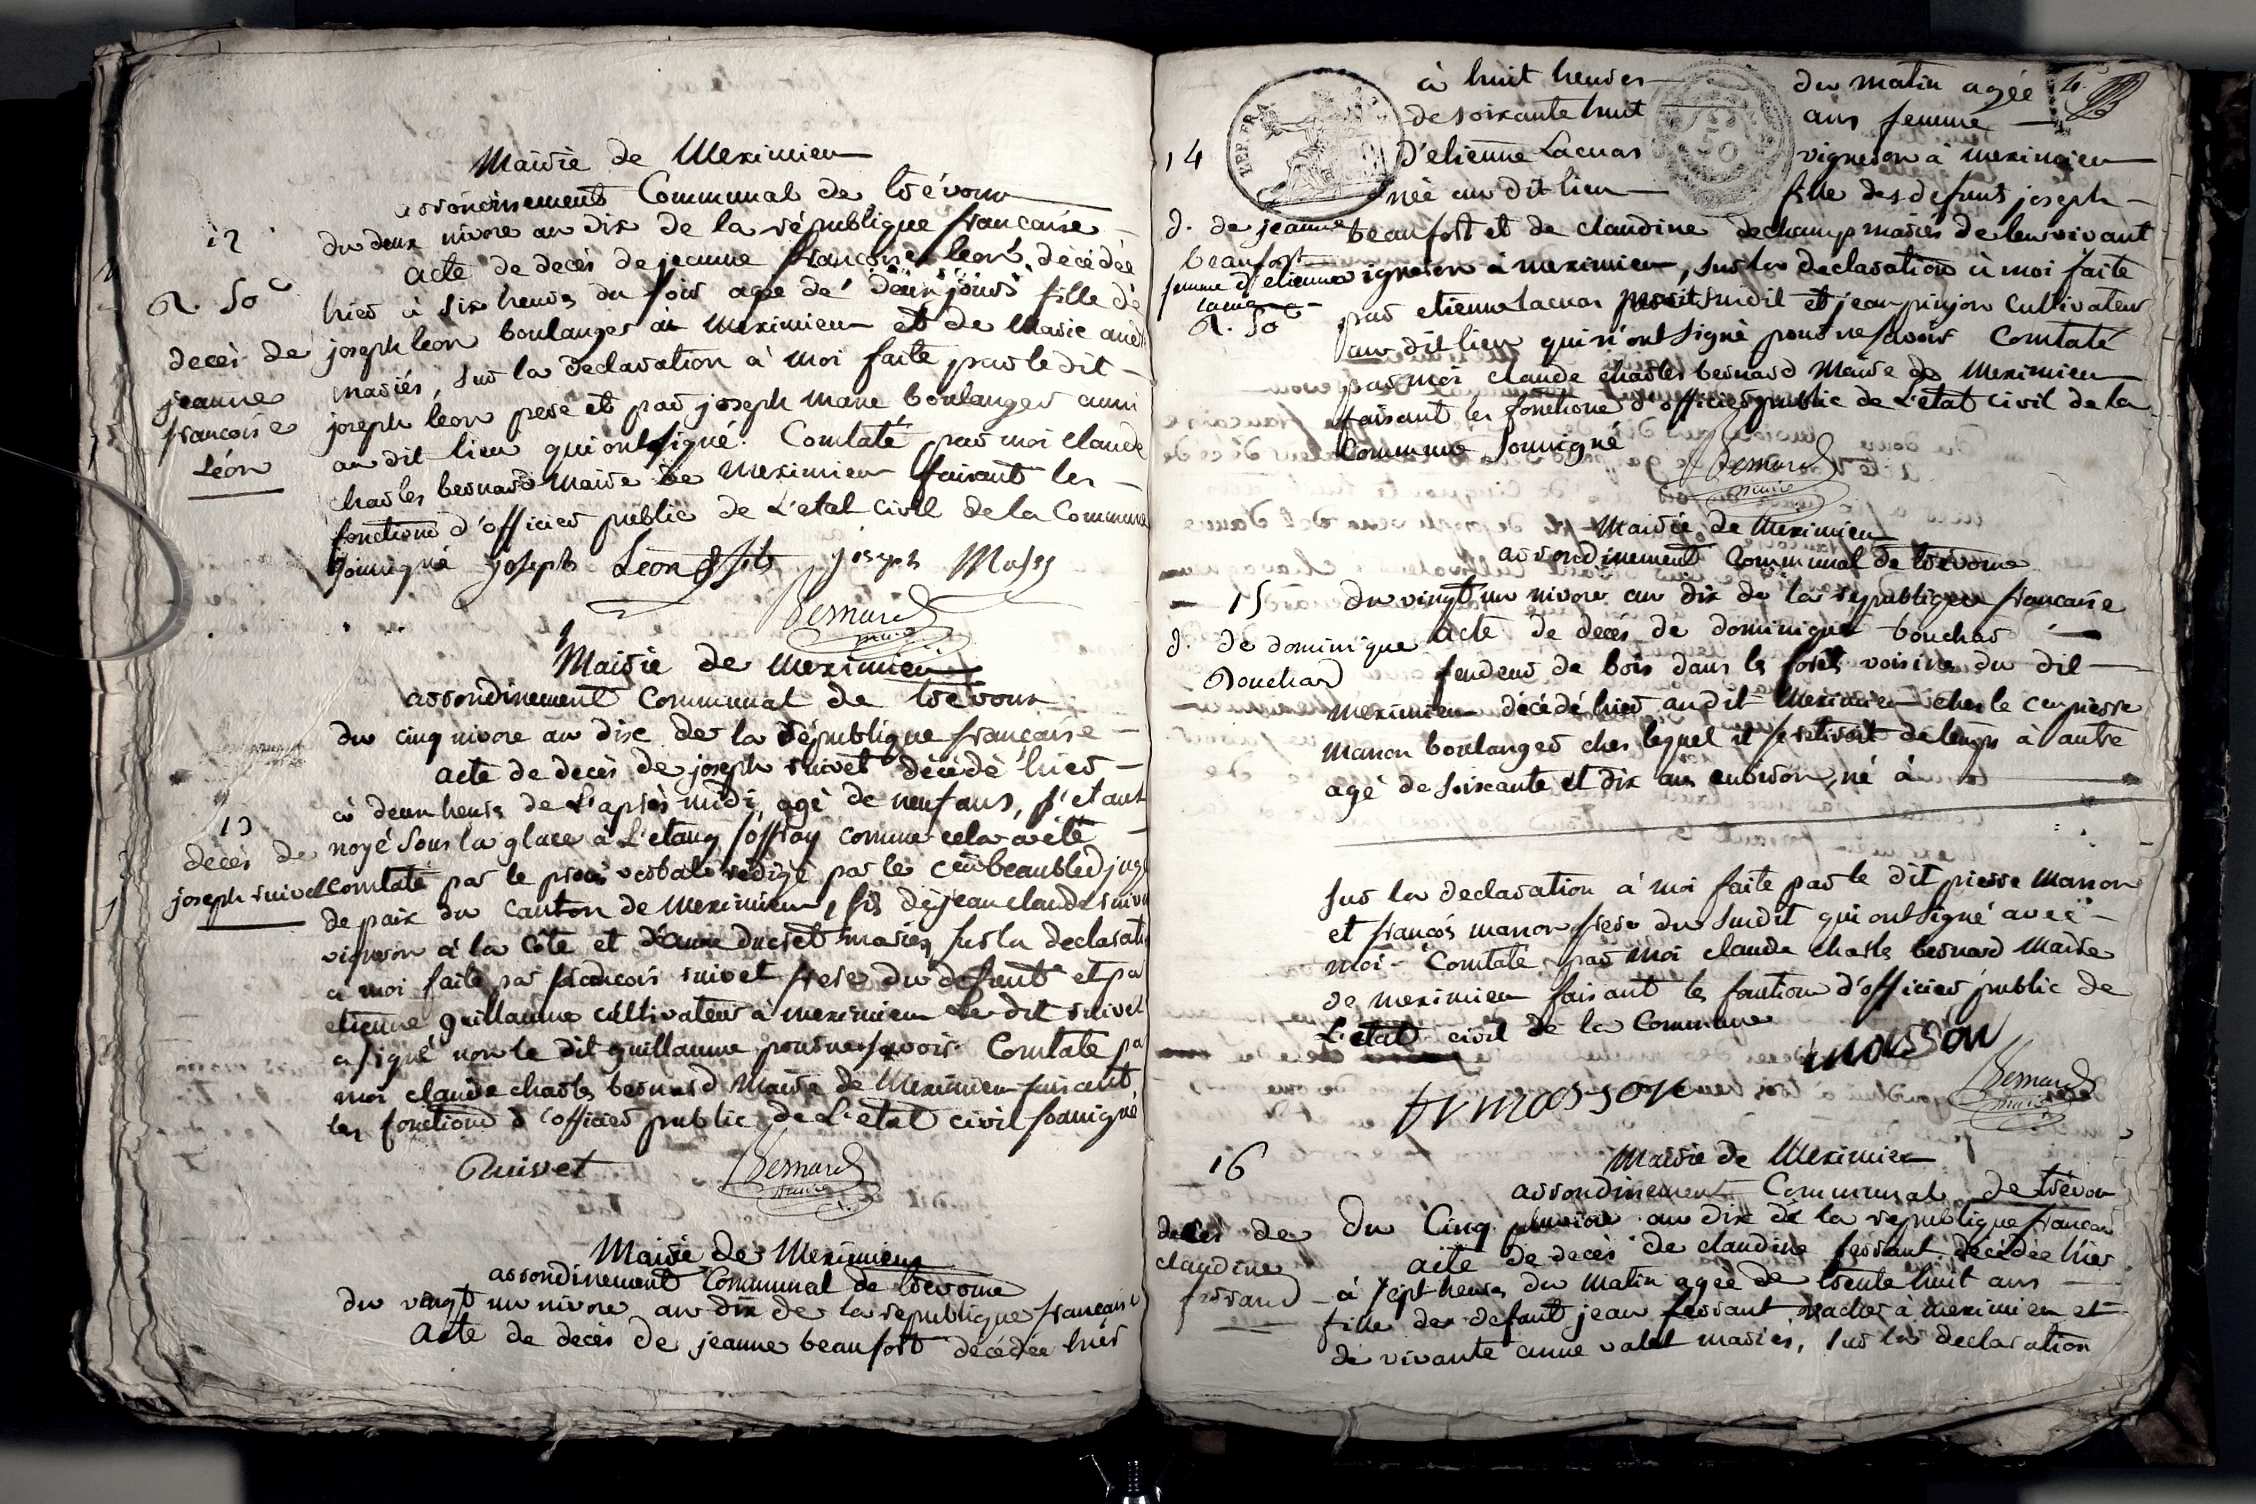 Mairie de Meximieu
arrondinement Communal de trévoux
12
du deux nivose an dix de la république francaise
acte de decès de jeanne francoise leon, décédée
R. 50c
hier à six heures du soir agée de deux jours fille de
decès de
joseph leon boulanger à Meximieu et de Marie
jeanne
mariés, sur la declaration à moi faite par le dit
francoise
joseph léon pere et par joseph mane boulanger aussi
Léon
au dit lieu qui ont signé. Constaté par moi claude
charles bernard maire de meximieu faisant les
fonctions d'officier public de L'etat civil de la Commune
soussigné joseph Léon fils joseph
Bernard
maire
Mairie de meximieu
arrondinement Communal de trévoux
du cinq nivose an dix de la république francaise
acte de decès de joseph ruivet décédé hier
à deux heures de L'après midi, agé de neuf ans, s'etant
13
decès de
noyé sous la glace à L'etang joffray comme cela a été
joseph ruivet
constaté par le procès verbal redigé par le cen beaubled juge
de paix du canton de meximieu, fils de jean claude ruivet
vigneron à la Côte et d'anne ducret mariés, sur la declaration
a moi faite par francois ruivet frere du defunt et par
etienne guillaume cultivateur à meximieu Le dit ruivet
a signé non le dit guillaume pour ne savoir Constaté par
moi claude charles bernard Maire de Meximieu faisant
les fonctions d'officier public de L'etat civil soussigné
Ruivet Bernard
maire
Mairie de Meximieu
arrondinement Communal de trevoux
du vingt un nivose an dix de la republique francaise
acte de decès de jeanne beaufort décédée hier
à huit heures du matin agée 4.
de soixante huit ans femme
14
d'etienne Lacuas vigneron à meximieu
née au dit lieu fille des defunts joseph
REP. FRA
50
d. de jeanne
beaufort et de claudine dechamp mariés de leur vivant
beaufort
vigneron à meximieu, sur la declaration à moi faite
femme d'etienne
par etienne Lacuas mari susdit et jean pinjon cultivateur
R. 50c
au dit lieu qui n'ont signé pour ne savoir Constaté
par moi claude charles bernard Maire de Meximieu
faisant les fonctions d'officier public de L'etat civil de la
Commune soussigné
Bernard
maire
Mairie de Meximieu
arrondinement Communal de trévoux
15
du vingt un nivose an dix de la republique francaise
acte de decès de dominique bouchar
d. de dominique
fendeur de bois dans les forets voisines du dit
Bouchard
meximieu décédé hier au dit Meximieu ches le cen pierre
manon boulanger ches lequel il se retiroit de temps à autre
agé de soixante et dix ans environ, né à
sur la declaration à moi faite par le dit pierre manon
et françois manon frere du susdit qui ont signé avec
moi. Constaté par moi claude charles bernard Maire
de meximieu faisant les fontions d'officier public de
L'etat civil de la Commune
masson
fr masson
Bernard
maire
16
Mairie de Meximieu
arrondinement Communal de trévoux
decès de
du Cinq pluviose an dix de la republique francaise
claudine
acte de decès de claudine ferrant décédée hier
ferrand
à sept heures du matin agée de trente huit ans
fille de defunt jean ferrant vacher à meximieu et
de vivante anne valet mariés, sur la declaration